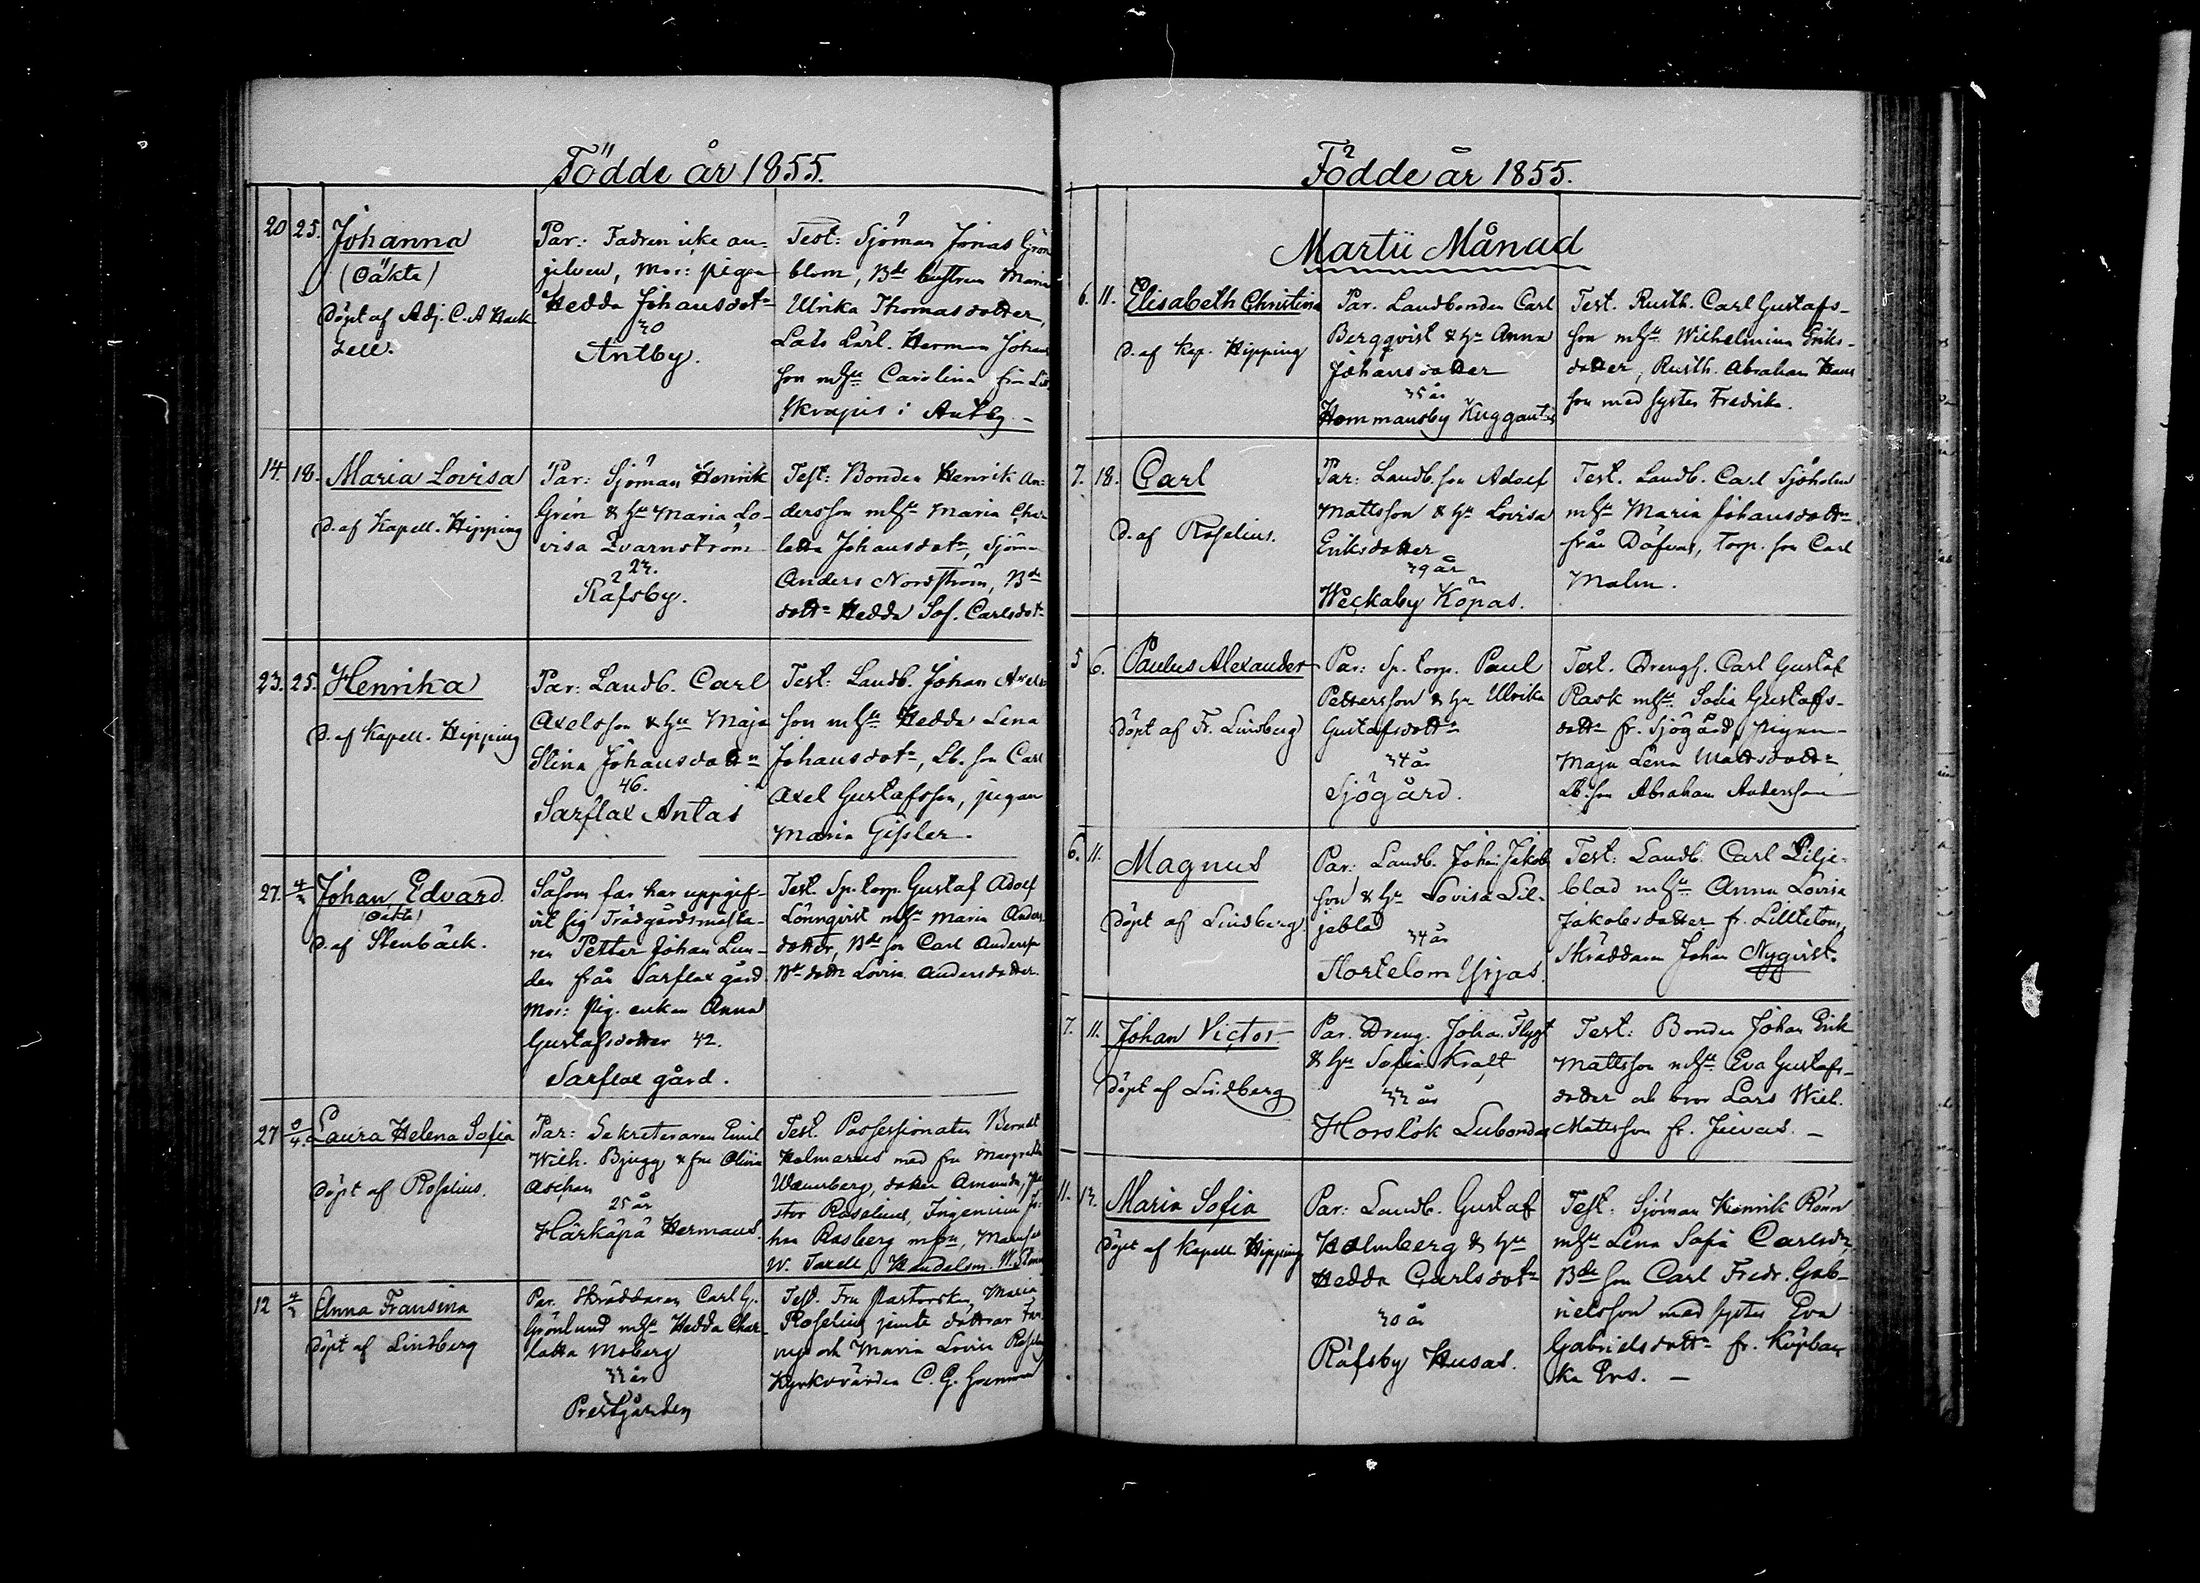 Födde år 1855.
20 25. Johanna
(Oäkta)
Döpt af Adj. C. A Hack
zell.
Par: Fadren icke an-
gifven, Mor: pigan
Hedda Johansdotr
30
Antby.
Test: Sjöman Jonas Grön
blom, Bde hustrun Maria
Ulrika Thomasdotter,
Lots Lärl. Herman Johans
son mhu Carolina från
i Antby
14. 18. Maria Lovisa
D. af Kapell. Hipping
Par: Sjöman Henrik
Grén & hu Maria Lo-
visa Qvarnström
23.
Räfsby.
Test: Bonden Henrik An-
dersson mhu Maria Char
lotta Johansdotr, Sjöm.
Anders Nordström, Bde
dottr Hedda Sof. Carlsdotr
23. 25. Henrika
D. af Kapell. Hipping
Par: Landb. Carl
Axelsson & hu Maja
Stina Johansdottr
46.
Sarflax Antas
Test: Landb. Johan Axels
son mhu Hedda Lena
Johansdotr, Lb. son Carl
Axel Gustafsson, pigan
Maria Gissler.
27. 4/3 Johan Edvard.
(Oäkta)
D. af Stenbäck.
Såsom far har uppgif-
vit sig Trädgårdsmästa-
ren Petter Johan Lin-
den från Sarflax gård.
Mor: Pig. enkan Anna
Gustafsdotter 42.
Sarflax gård.
Test. Sp. torp. Gustaf Adolf
Lönnqvist mhu Maria Anders
dotter, Bde son Carl Anderss
Bde dottr Lovisa Andersdotter.
27 3/4. Laura Helena Sofia
Döpt af Roselius.
Par: Sekreteraren Emil
Wilh. Bjugg & fru Olivia
Aschan
25 år
Härkäpä Hermans.
Test. Possessionaten Berndt
Holmarus med fru Margretha
Wannberg, dotter Amanda,
Roselius, Ingeniern
Rosberg mfru,
W. Handelsm. W.
12 4/3 Anna Fransina
Döpt af Lindberg
Par. Skräddaren Carl G.
Grönlund mhu Hedda Char-
lotta Moberg
33 år
Prestgården
Test. Fru Pastorskan Maria
Roselius jemte döttrar Fan
ny och Maria Lovisa Roseli
Kyrkovärden C. G.
Födde år 1855.
Martii Månad
6. 11. Elisabeth Christina
D. af Kap. Hipping
Par. Landbonden Carl
Bergqvist & hu Anna
Johansdotter
35 år
Hommansby Huggantas
Test. Rusth. Carl Gustafs-
son mhu Wilhelmina Eriks-
dotter, Rusth. Abraham Hans
son med syster Fredrika.
7. 18. Carl
D. af Roselius.
Par: Landb. son Adolf
Mattsson & hu Lovisa
Eriksdotter
39 år
Weckaby Köpas.
Test. Landb. Carl Sjöholm
mhu Maria Johansdottr
från Döfvas, Torp. son Carl
Malm.
5 6. Paulus Alexander
Döpt af Fr. Lindberg
Par: Sp. torp. Paul
Pettersson & hu Ulrika
Gustafsdottr
34 år
Sjögård.
Test. Drengs. Carl Gustaf
Rask mhu. Sofia Gustafs-
dottr fr. Sjögård, pigan
Maja Lena Mattsdottr,
Lb. son Abraham Andersson
6. 11. Magnus
Döpt af Lindberg
Par: Landb. Johan Jakobs
son & hu Lovisa Lil-
jeblad
34 år
Stortelom Yrjas.
Test: Landb. Carl Lilje-
blad mhu Anna Lovisa
Jakobsdotter fr. Lilltelom,
Skräddaren Johan Nyqvist.
7. 11. Johan Victor
Döpt af Lindberg
Par. Dreng. Johan Flygt
& hu Sofia Kraft
33 år
Horslök Lubondas
Test: Bonden Johan Erik
Mattsson mhu Eva Gustafs-
dotter och bror Lars Wilh.
Mattsson fr. Juvas.
11. 13. Maria Sofia
Döpt af Kapell Hipping
Par: Landb. Gustaf
Holmberg & hu
Hedda Carlsdotr
30 år
Räfsby Husas.
Test. Sjöman Henrik Rönn
mhu Lena Sofia Carlsdr,
Bde son Carl Fredr. Gab-
rielsson med syster Eva
Gabrielsdottr fr. Köpbac
ka Ers.